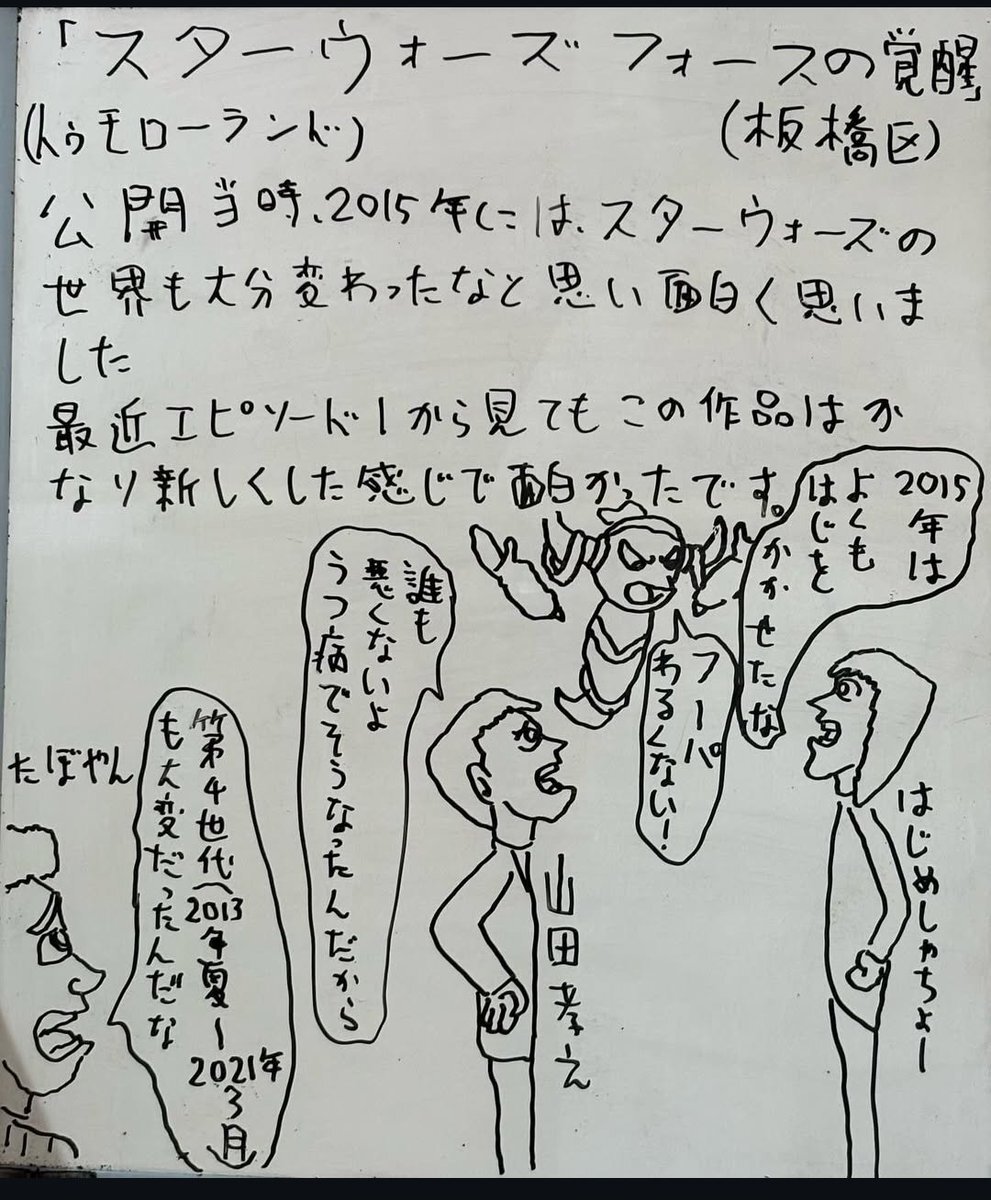 「スターウォーズフォースの覚醒」
(トゥモローランド)
(板橋区)
公開当時、2015年には、スターウォーズの
世界も大分変わったなと思い面白く思いま
した
最近エピソード1から見てもこの作品はか
なり新しくした感じで面白かったです。
2015
年は
よくも
はじを
かかせたな
はじめしゃちょー
フーパ
わるくない!
誰も
悪くないよ
うつ病でそうなったんだから
山田孝え
第4世代(2013年夏~2021年3月)
も大変だったんだな
たぼやん